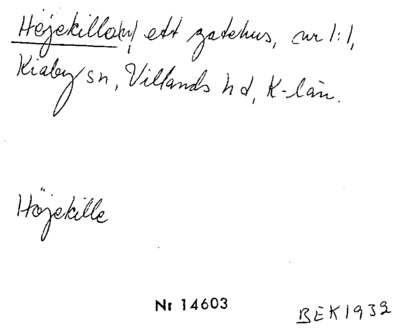 Höjekilla(n) ett gatehus, nr 1:1,
Kiaby sn, Villands hd, K-län.
Höjekille
Nr 14603
BEK1932